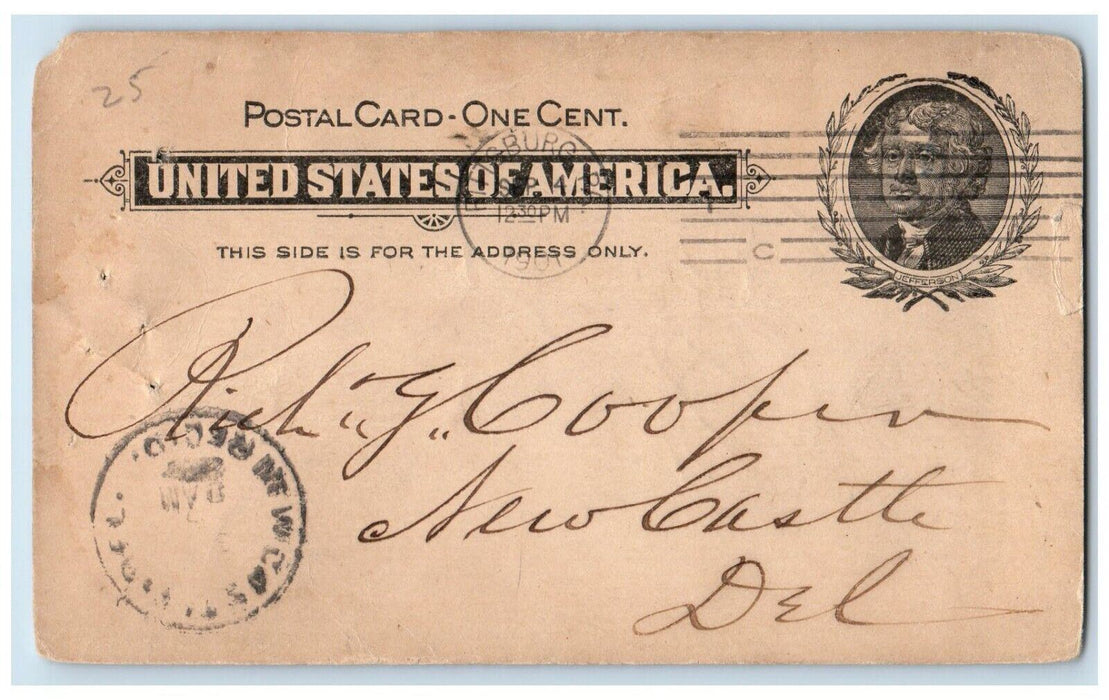 25
POSTAL CARD - ONE CENT.
UNITED STATES OF AMERICA.
THIS SIDE IS FOR THE ADDRESS ONLY.
SEP 4
12 30 PM
C
JEFFERSON
Rich "J" Cooper
New Castle
Del
NEW CASTLE, DEL.
REC'D.
AM